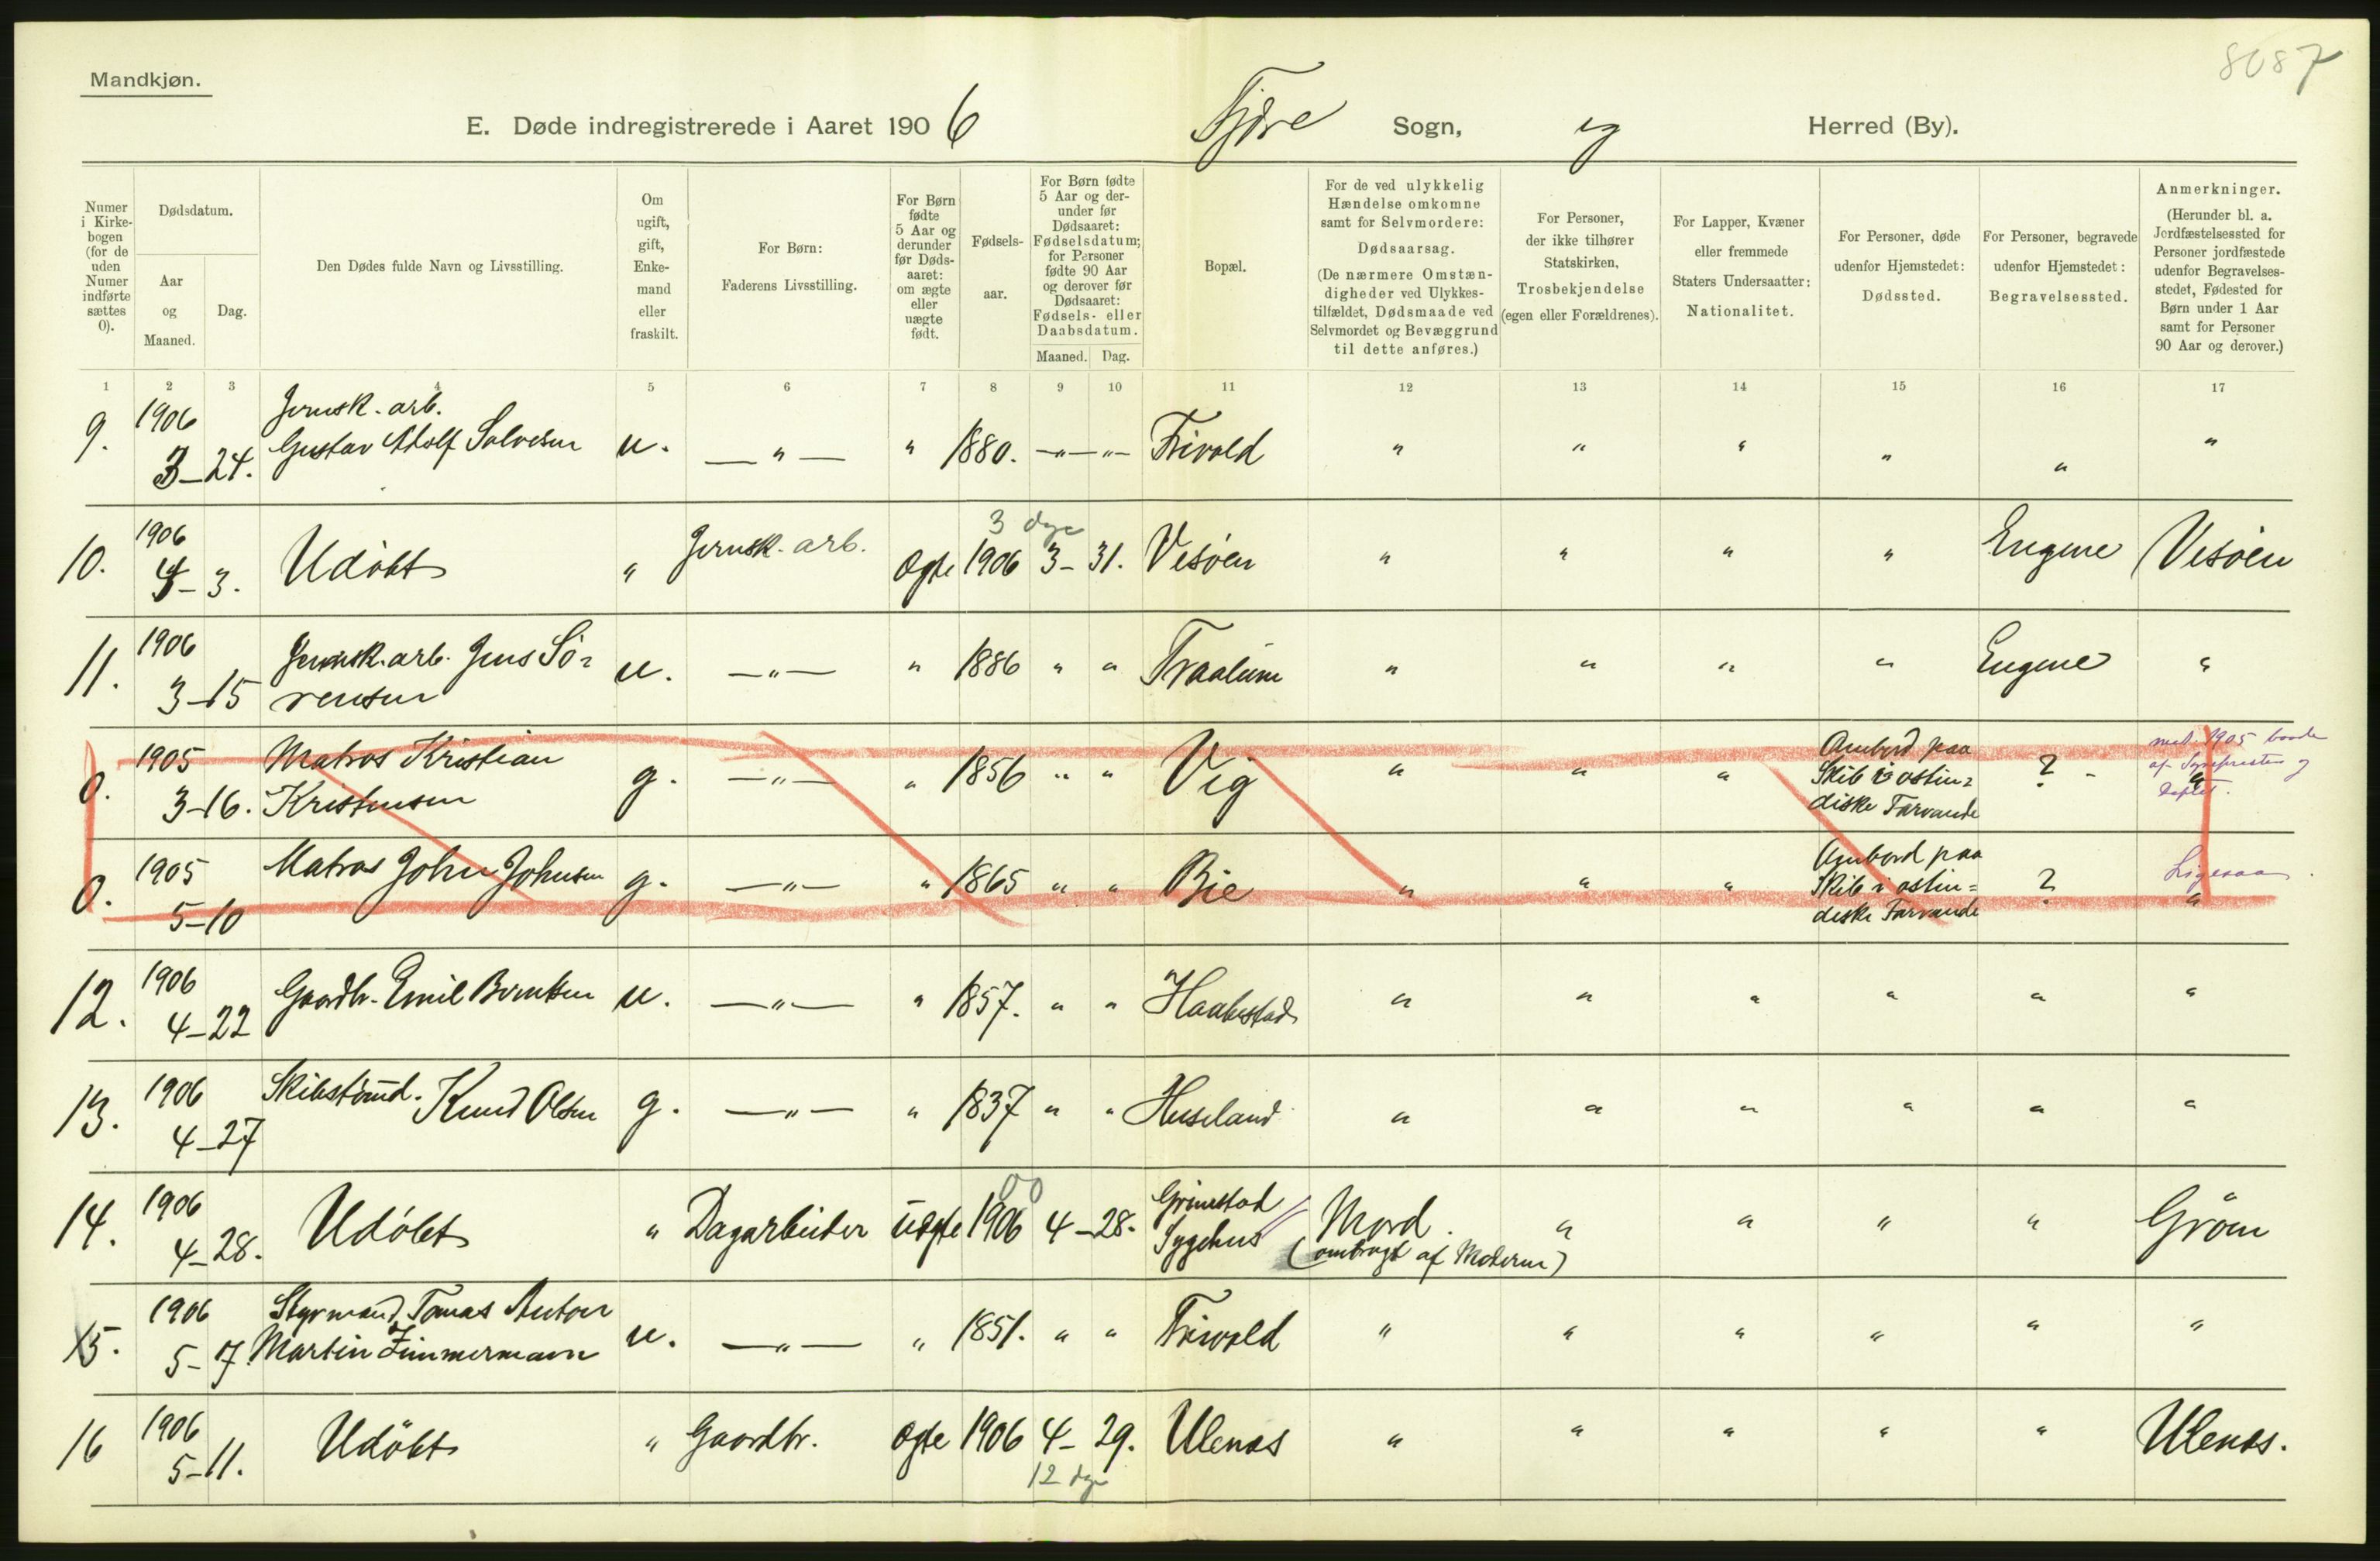 8087
Mandkjøn.
E. Døde indregistrerede i Aaret 1906 Fjære Sogn, og Herred (By).
Numer i Kirke-bogen (for de uden Numer indførte sættes 0).
Dødsdatum.
Aar og Maaned.
Dag.
Den Dødes fulde Navn og Livsstilling.
Om ugift, gift, Enke-mand eller fraskilt.
For Børn: Faderens Livsstilling.
For Børn fødte 5 Aar og derunder før Døds-aaret: om ægte eller uægte født.
Fødsels-aar.
For Børn fødte 5 Aar og der-under før Dødsaaret: Fødselsdatum; for Personer fødte 90 Aar og derover før Dødsaaret: Fødsels- eller Daabsdatum.
Maaned. Dag.
Bopæl.
For de ved ulykkelig Hændelse omkomne samt for Selvmordere: Dødsaarsag. (De nærmere Omstæn-digheder ved Ulykkes-tilfældet, Dødsmaade ved Selvmordet og Bevæggrund til dette anføres.)
For Personer, der ikke tilhører Statskirken, Trosbekjendelse (egen eller Forældrenes).
For Lapper, Kvæner eller fremmede Staters Undersaatter: Nationalitet.
For Personer, døde udenfor Hjemstedet: Dødssted.
For Personer, begravede udenfor Hjemstedet: Begravelsessted.
Anmerkninger. (Herunder bl. a. Jordfæstelsessted for Personer jordfæstede udenfor Begravelses-stedet, Fødested for Børn under 1 Aar samt for Personer 90 Aar og derover.)
1 2 3 4 5 6 7 8 9 10 11 12 13 14 15 16 17
9. 1906 3-24. Jernsk. arb. Gustav Adolf Salvesen u. — " — " 1880. — " — " — Frivold " " " " " "
10. 1906 4-3. Udøbt " Jernsk. arb. Ægte 1906 3-31. 3 dge Vesøen " " " " Eugene Vesøen
11. 1906 3-15 Jernsk. arb. Jens Sø=rensen u. — " — " 1886 " " Traalum " " " " Eugene "
0. 1905 3-16. Matros Kristian Kristensen g. — " — " 1856 " " Vig " " " Ombord paa Skib i ostin=diske Farvande ? - " 1905 baade af og
0. 1905 5-10 Matros John Johnsen g. — " — " 1865 " " Bie " " " Ombord paa Skib i ostin=diske Farvande ? " Ligesaa.
12. 1906 4-22 Gaardbr. Emil Berntsen u. — " — " 1857. " " Haabestad " " " " " "
13. 1906 4-27 Skibstømd. Knud Olsen g. — " — " 1837 " " Huseland " " " " " "
14. 1906 4-28. Udøbt " Dagarbeider uægte 1906 00 4-28. Grimstad Sygehus Mord. (ombragt af Moderen) " " " " Grøm
15. 1906 5-7. Styrmand Tomas Anton Martin Zimmermann u. — " — " 1851. " " Frivold " " " " " "
16 1906 5-11. Udøbt " Gaardbr. Ægte 1906 4-29. 12 dge Ulenes " " " " " Ulenes.